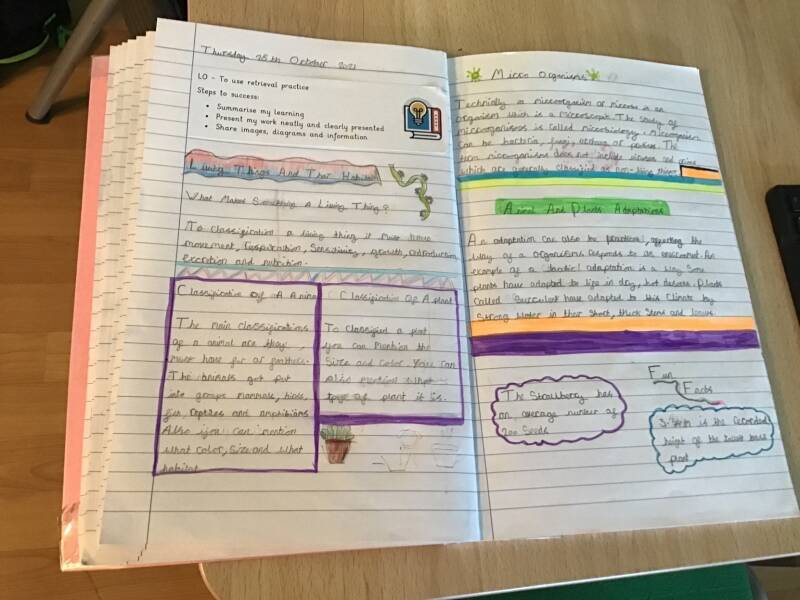 Thursday 28th October 2021
LO - To use retrieval practice
Steps to success:
• Summarise my learning
• Present my work neatly and clearly presented
• Share images, diagrams and information.
Living Things And Their
What Makes Something A Living Thing?
To Classification a living thing it must have
movement, respiration, Sensitivity, growth, reproduction,
excretion and nutrition.
Classification Of A Animal
The main classifications
of a animal are they
must have fur or
The animals get put
into groups mammals, birds,
fish, reptiles and amphibians
Also you can mention
what color, size and what
habitat
Classification Of A plant
To Classified a plant
you can mention the
Size and color. You can
also mention what
type of plant it is.
Micro Organisms
Technically a microorganism or microbe is an
organism which is a microscopic. The study of
microorganisms is called microbiology. Microorganisms
can be bacteria, fungi, archaea or protists. The
term microorganisms does not include viruses and
which are generally classified as non-living things
And Plants Adaptations
An adaptation can also be affecting the
way of a organisms responds to an
example of a adaptation is a way some
plants have adapted to life in dry, hot deserts. Plants
called Succulent have adapted to this climate by
Storing Water in their Short, thick Stems and leaves.
Fun
Facts
The Strawberry has
an average number of
200 Seeds
is the recorded
height of the
plant